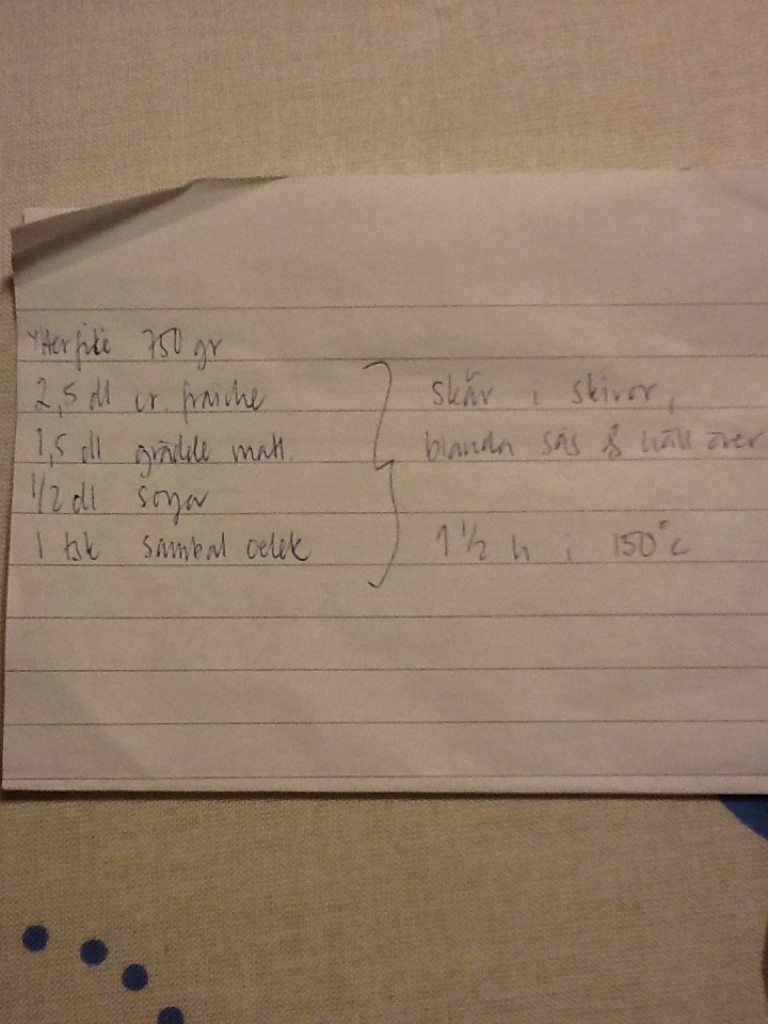 Ytterfilé 750 gr
2,5 dl cr. fraiche
1,5 dl grädde matl.
1/2 dl soya
1 tsk sambal oelek
skär i skivor,
blanda sås & häll över
1 1/2 h i 150°c